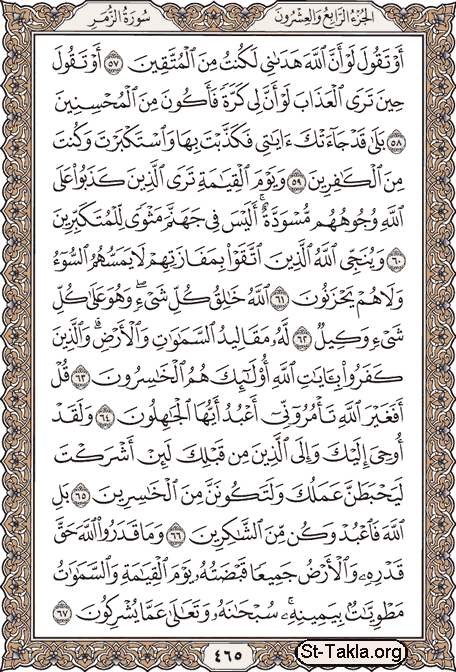 الجزء الرابع والعشرون
سورة الزمر
أَوْ تَقُولَ لَوْ أَنَّ ٱللَّهَ هَدَىٰنِى لَكُنتُ مِنَ ٱلْمُتَّقِينَ ٥٧ أَوْ تَقُولَ
حِينَ تَرَى ٱلْعَذَابَ لَوْ أَنَّ لِى كَرَّةً فَأَكُونَ مِنَ ٱلْمُحْسِنِينَ
٥٨ بَلَىٰ قَدْ جَآءَتْكَ ءَايَٰتِى فَكَذَّبْتَ بِهَا وَٱسْتَكْبَرْتَ وَكُنتَ
مِنَ ٱلْكَٰفِرِينَ ٥٩ وَيَوْمَ ٱلْقِيَٰمَةِ تَرَى ٱلَّذِينَ كَذَبُوا۟ عَلَى
ٱللَّهِ وُجُوهُهُم مُّسْوَدَّةٌ ۚ أَلَيْسَ فِى جَهَنَّمَ مَثْوًى لِّلْمُتَكَبِّرِينَ
٦٠ وَيُنَجِّى ٱللَّهُ ٱلَّذِينَ ٱتَّقَوْا۟ بِمَفَازَتِهِمْ لَا يَمَسُّهُمُ ٱلسُّوٓءُ
وَلَا هُمْ يَحْزَنُونَ ٦١ ٱللَّهُ خَٰلِقُ كُلِّ شَىْءٍ ۖ وَهُوَ عَلَىٰ كُلِّ
شَىْءٍ وَكِيلٌ ٦٢ لَّهُۥ مَقَالِيدُ ٱلسَّمَٰوَٰتِ وَٱلْأَرْضِ ۗ وَٱلَّذِينَ
كَفَرُوا۟ بِـَٔايَٰتِ ٱللَّهِ أُو۟لَٰٓئِكَ هُمُ ٱلْخَٰسِرُونَ ٦٣ قُلْ
أَفَغَيْرَ ٱللَّهِ تَأْمُرُوٓنِّىٓ أَعْبُدُ أَيُّهَا ٱلْجَٰهِلُونَ ٦٤ وَلَقَدْ
أُوحِىَ إِلَيْكَ وَإِلَى ٱلَّذِينَ مِن قَبْلِكَ لَئِنْ أَشْرَكْتَ
لَيَحْبَطَنَّ عَمَلُكَ وَلَتَكُونَنَّ مِنَ ٱلْخَٰسِرِينَ ٦٥ بَلِ
ٱللَّهَ فَٱعْبُدْ وَكُن مِّنَ ٱلشَّٰكِرِينَ ٦٦ وَمَا قَدَرُوا۟ ٱللَّهَ حَقَّ
قَدْرِهِۦ وَٱلْأَرْضُ جَمِيعًا قَبْضَتُهُۥ يَوْمَ ٱلْقِيَٰمَةِ وَٱلسَّمَٰوَٰتُ
مَطْوِيَّٰتٌۢ بِيَمِينِهِۦ ۚ سُبْحَٰنَهُۥ وَتَعَٰلَىٰ عَمَّا يُشْرِكُونَ ٦٧
٤٦٥
St-Takla.org